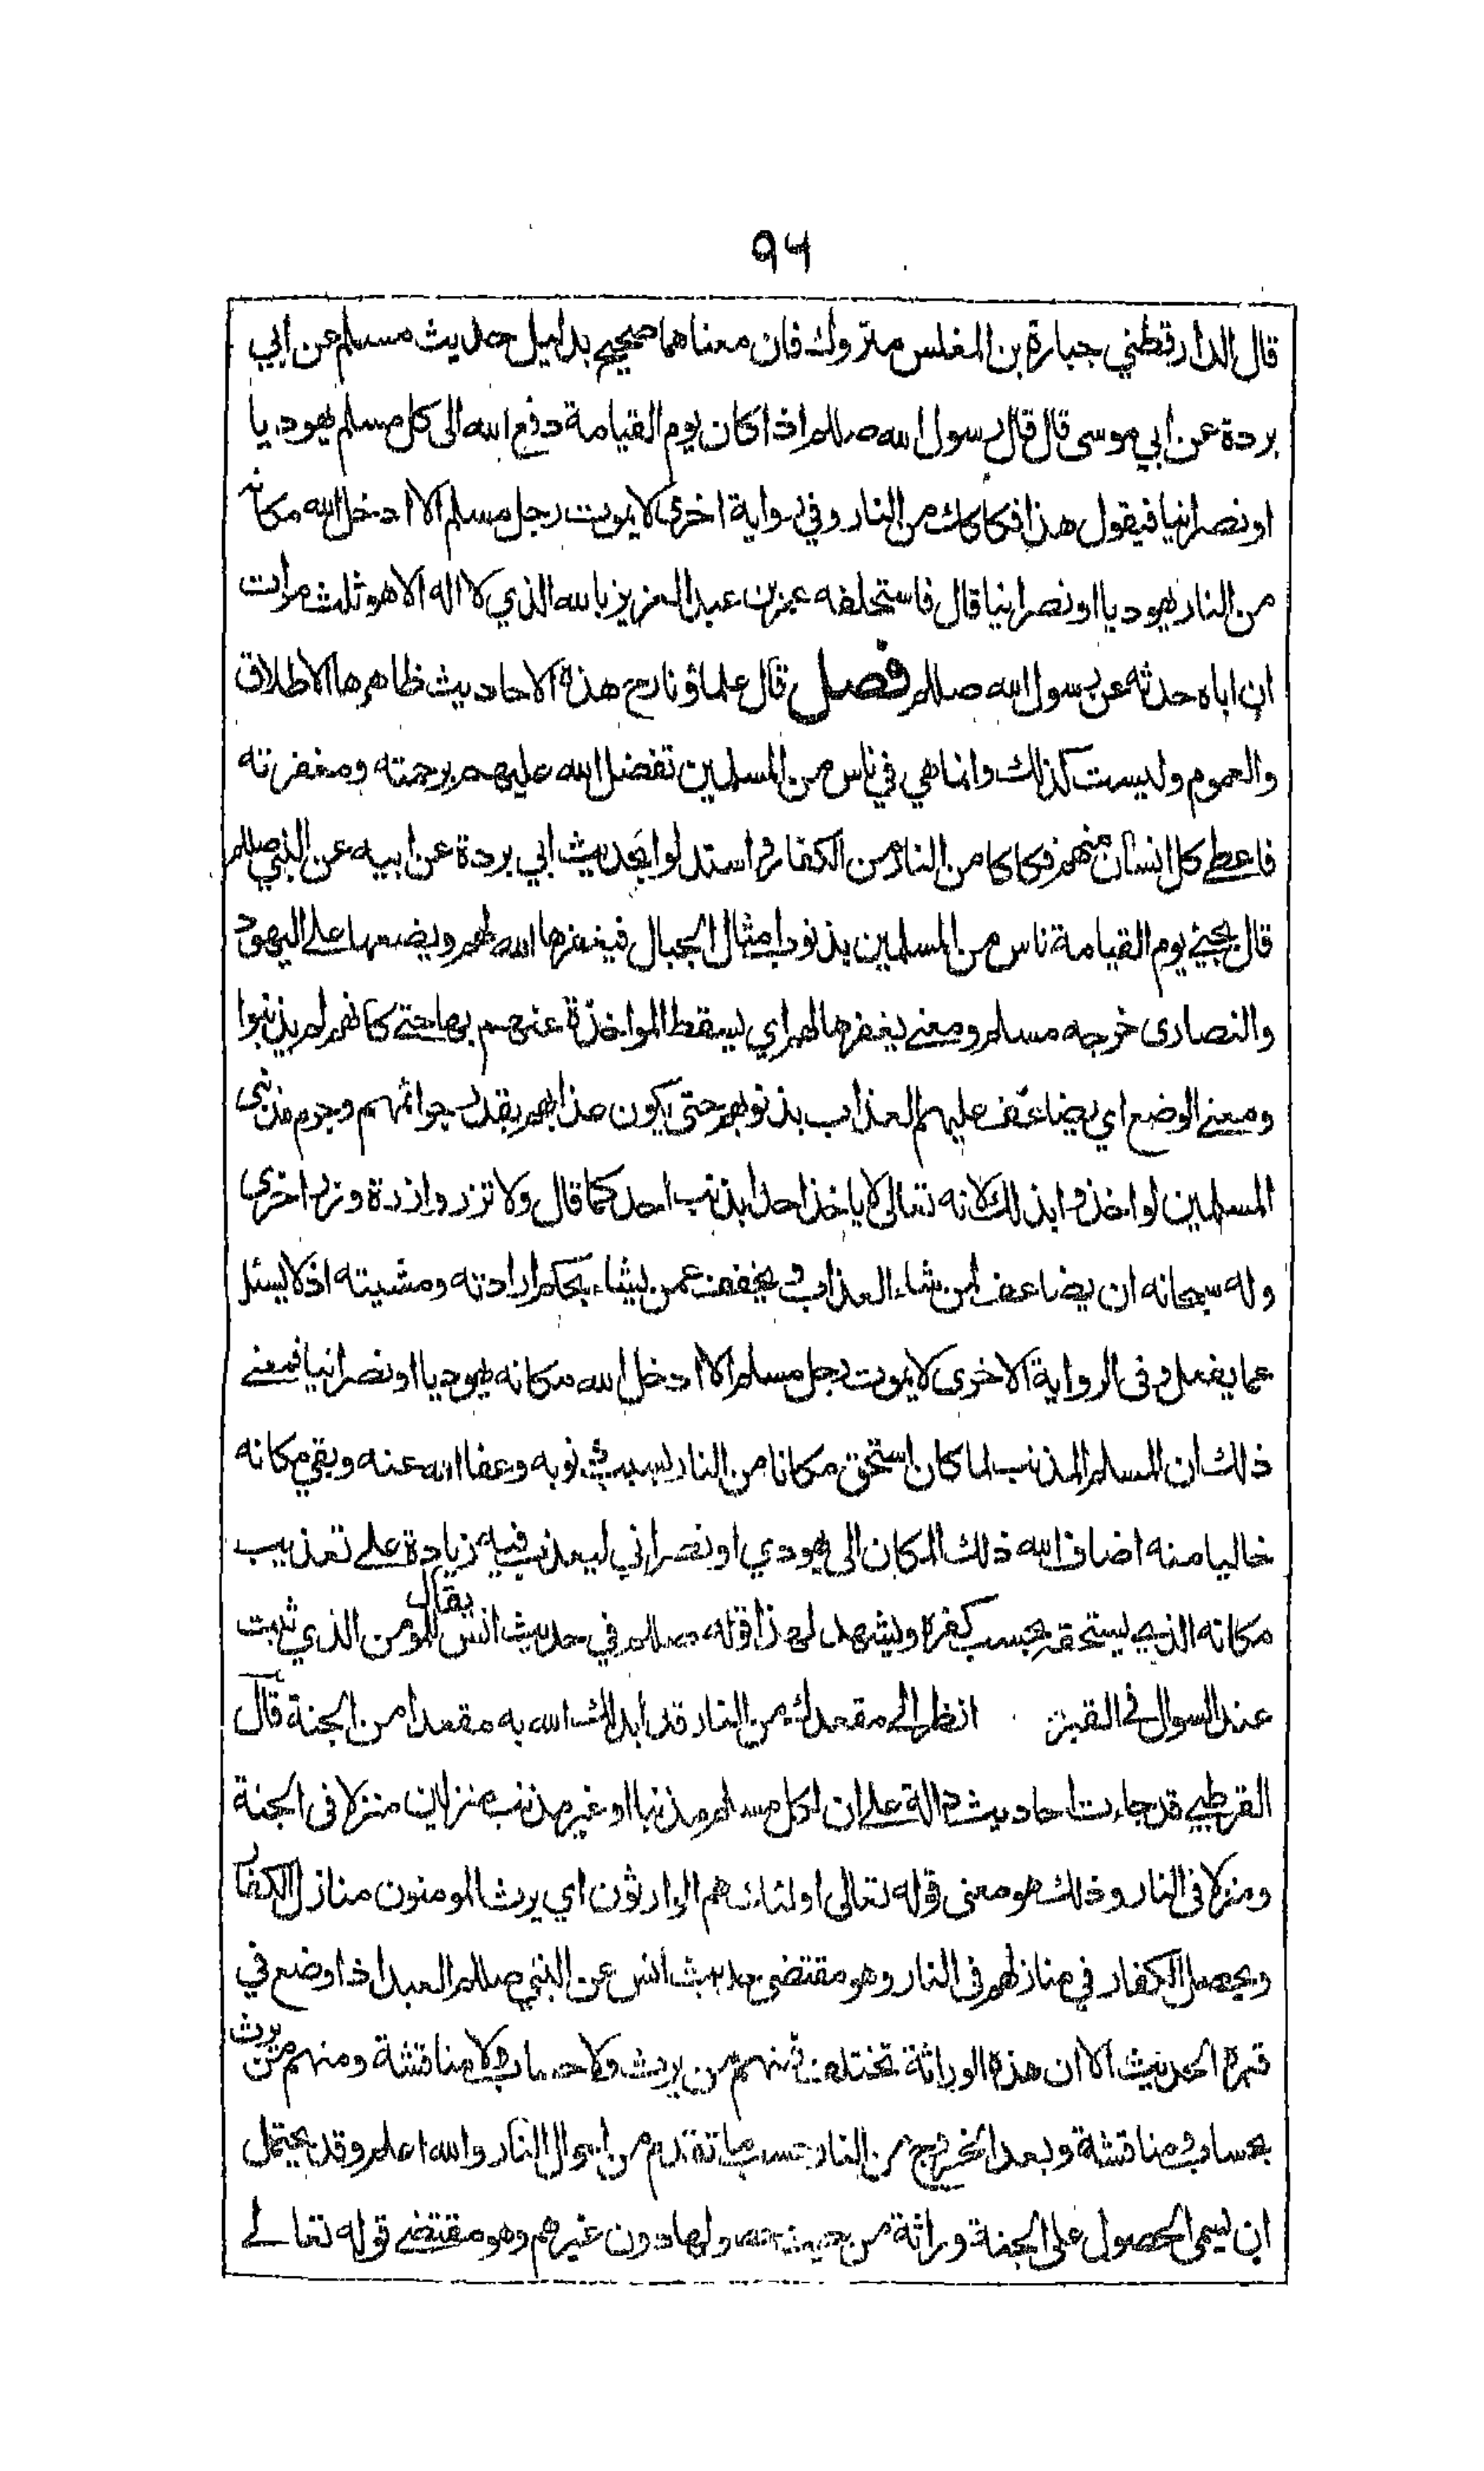 ٩٦
قال الدارقطني جبارة بن المغلس متروك فان معناهما صحيح بدليل حديث مسلم عن ابي
بردة عن ابي موسى قال قال رسول الله صللم اذا كان يوم القيامة دفع الله الى كل مسلم يهوديا
او نصرانيا فيقول هذا فكاكك من النار وفي رواية اخرى لا يموت رجل مسلم الا ادخل الله مكانه
من النار يهوديا او نصرانيا قال فاستحلفه عمر بن عبد العزيز بالله الذي لا اله الا هو ثلث مرات
ان اباه حدثه عن رسول الله صللم فصل قال علماؤنا رح هذه الاحاديث ظاهرها الاطلاق
والعموم وليست كذلك وانما هي في ناس من المسلمين تفضل الله عليهم برحمته ومغفرته
فاعطى كل انسان منهم فكاكا من النار من الكفار واستدلوا بحديث ابي بردة عن ابيه عن النبي صللم
قال يجئ يوم القيامة ناس من المسلمين بذنوب امثال الجبال فيغفرها الله لهم ويضعها على اليهود
والنصارى خرجه مسلم ومعنے يغفرها لهم اي يسقط المواخذة عنهم بها حتے كانهم لم يذنبوا
ومعنے الوضع اي يضاعف عليهم العذاب بذنوبهم حتى يكون عذابهم بقدر جرائمهم وجرم مذنبى
المسلمين لو اخذوا بذلك لانه تعالى لا ياخذ احدا بذنب احد كما قال ولا تزر وازرة وزر اخرى
وله سبحانه ان يضاعف لمن شاء العذاب و يخفف عمن يشاء بحكم ارادته ومشيته اذ لا يسئل
عما يفعل وفى الرواية الاخرى لا يموت رجل مسلم الا ادخل الله مكانه يهوديا او نصرانيا فمعنے
ذلك ان المسلم المذنب لما كان استحق مكانا من النار بسبب ذنوبه وعفا الله عنه وبقي مكانه
خاليا منه اضاف الله ذلك المكان الى يهودي او نصراني ليعذب فيه زيادة علے تعذيب
مكانه الذي يستحقه بحسب كفره ويشهد لهذا قوله صللم في حديث انس يقال للمؤمن الذي ثبت
عند السوال فى القبر انظر الى مقعدك من النار قد ابدلك الله به مقعدا من الجنة قال
القرطبي قد جاءت احاديث دالة على ان لكل مسلم مذنبا او غير مذنب منزلين منزلا فى الجنة
ومنزلا فى النار وذلك هو معنى قوله تعالى اولئك هم الوارثون اي يرث المومنون منازل الكفار
ويحصل الكفار في منازلهم فى النار وهو مقتضى حديث انس عن النبي صللم العبد اذا وضع في
قبره الحديث الا ان هذه الوراثة تختلف فمنهم من يرث ولا حساب ولا مناقشة ومنهم من يرث
بحساب ومناقشة وبعد الخروج من النار حسب ما تقدم من احوال النار والله اعلم وقد يحتمل
ان يسمى الحصول على الجنة وراثة من حيث حصولها دون غيرهم وهو مقتضے قوله تعالے